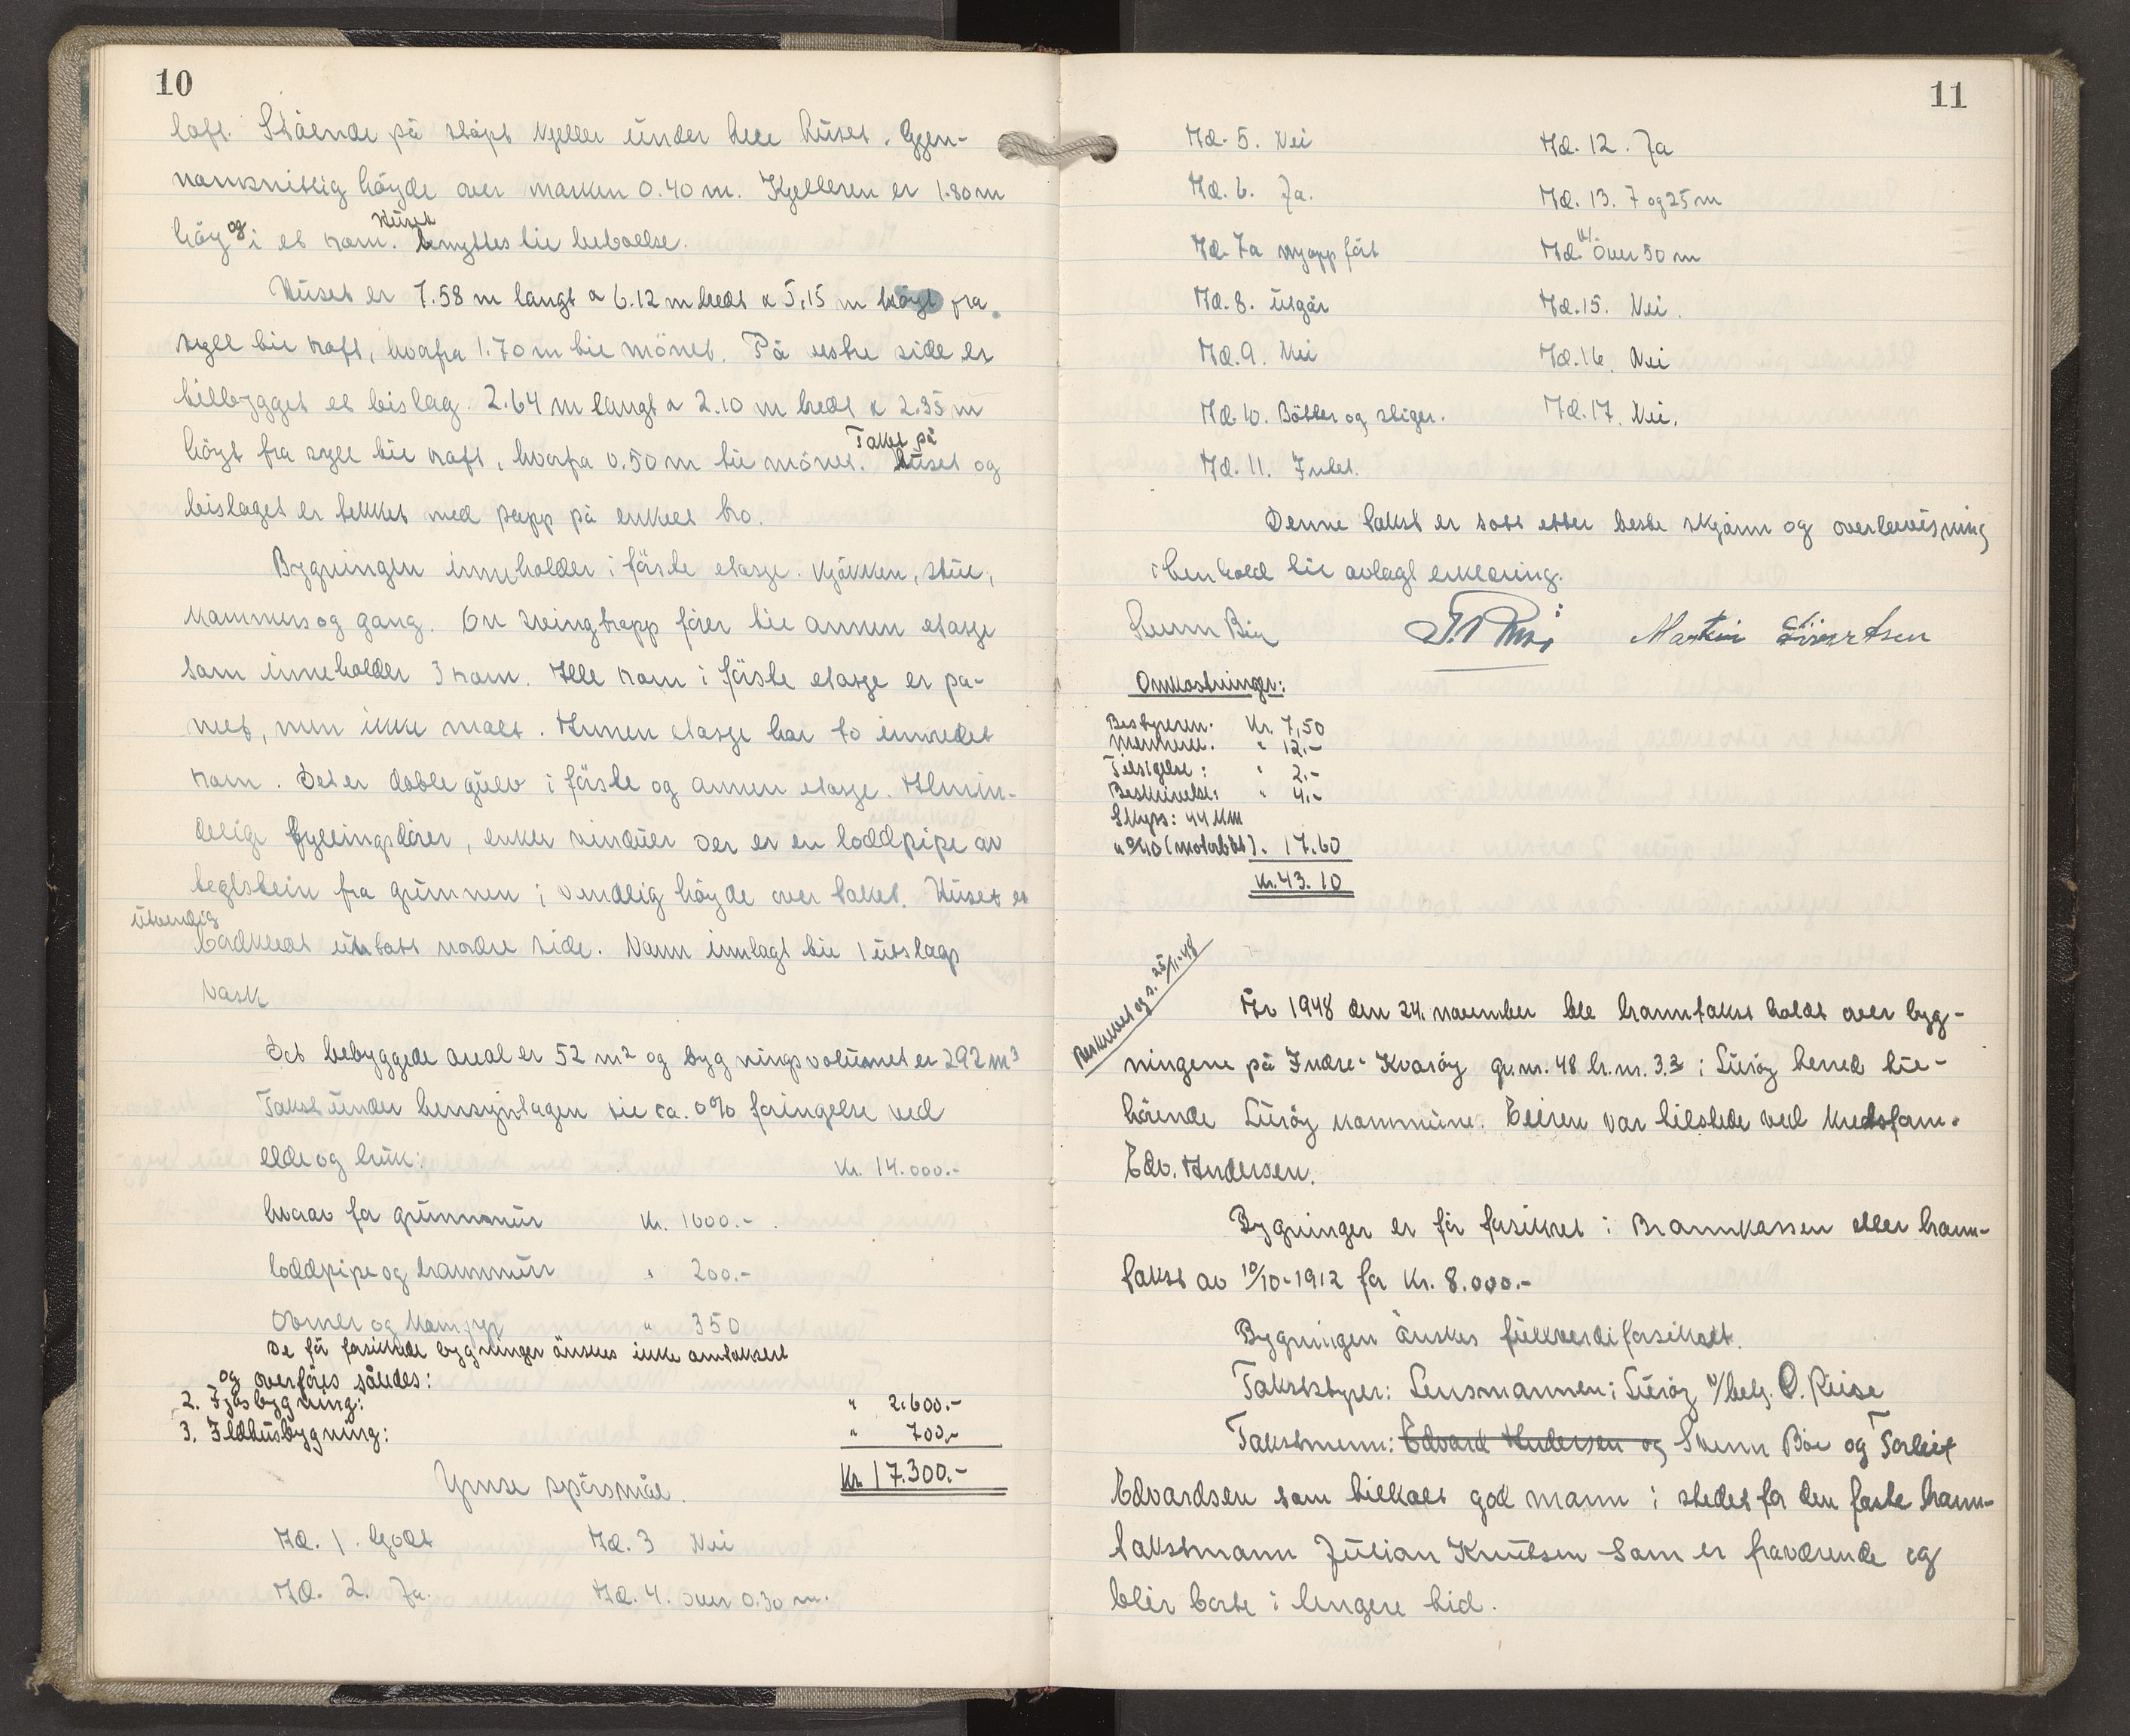 10
loft. Stående på støpt kjeller under hele huset. Gjen-
nomsnittlig høyde over marken 0.40 m. Kjelleren er 1.80 m
høy og i et rom. Huset benyttes til beboelse.
Huset er 7.58 m langt x 6.12 m bredt x 5,15 m høyt fra
syll til raft, hvorfra 1.70 m til mønet. På vestre side er
tilbygget et bislag. 2.64 m langt x 2.10 m bredt x 2.35 m
høyt fra syll til raft, hvorfra 0.50 m til mønet. Taket på huset og
bislaget er tekket med papp på enkelt bro.
Bygningen inneholder i første etasje. Kjøkken, stue,
kammers og gang. En svingtrapp fører til annen etasje
som inneholder 3 rom. Alle rom i første etasje er pa-
nelt, men ikke malt. Annen etasje har to innredet
rom. Det er doble gulv i første og annen etasje. Almin-
delige fyllingsdører, enkle vinduer Der er en loddpipe av
teglstein fra grunnen i vendlig høyde over taket. Huset er
utvendig
bordkledt untatt nordre side. Vann innlagt til 1 utslags
vask
Det bebyggede areal er 52 m² og bygningsvolumet er 292 m³
Takst under hensyntagen til ca. 0% foringelse ved
elde og bruk: Kr. 14.000.-
hvorav for grunnmur Kr. 1000.-
loddpipe og brannmur " 200.-
Ovner og komfyr " 350
De før forsikrede bygninger ønskes ikke omtaksert
og overføres således:
2. Fjøsbygning: " 2.600.-
3. Ildhusbygning: " 700,-
Kr. 17.300.-
Ymse spørsmål.
Ad. 1. Godt Ad. 3 Nei
Ad. 2. Ja. Ad. 4. over 0.30 m.
11
Ad. 5. Nei Ad. 12. Ja
Ad. 6. Ja. Ad. 13. 7 og 25 m
Ad. 7a nyoppført Ad. 14. Over 50 m
Ad. 8. utgår Ad. 15. Nei.
Ad. 9. Nei Ad. 16. Nei
Ad. 10. Bøtter og stiger. Ad. 17. Nei.
Ad. 11. Intet.
Denne takst er satt etter beste skjønn og overbevisning
i henhold til avlagt erklæring.
Martin Sivertsen
Omkostninger:
Bestyreren. Kr. 7,50
Mennene. " 12.-
Tilsigelse: " 2.-
Beskrivelse: " 4.-
Skyss: 44 KM
a 0/40 (motorbåt). 17.60
Kr. 43.10
Beskrevet og s. 25/11-48
År 1948 den 24. november ble branntakst holdt over byg-
ningene på Indre-Kvarøy gr.nr. 48 br.nr. 3.3 i Lurøy herred til-
hørende Lurøy kommune. Eieren var tilstede ved kretsform.
Edv. Andersen.
Bygninger er før forsikret i Brannkassen etter brann-
takst av 10/10-1912 for Kr. 8.000.-
Bygningen ønskes fullverdiforsikret.
Takstbyrer: Lensmannen i Lurøy v/betj. O. Riise
Takstmenn: Edvard Andersen og Svenn Bøe og Torleif
Edvardsen som tilkalt god mann i stedet for den faste brann-
takstmann Julian Knutsen som er fraværende og
blir borte i lengere tid.